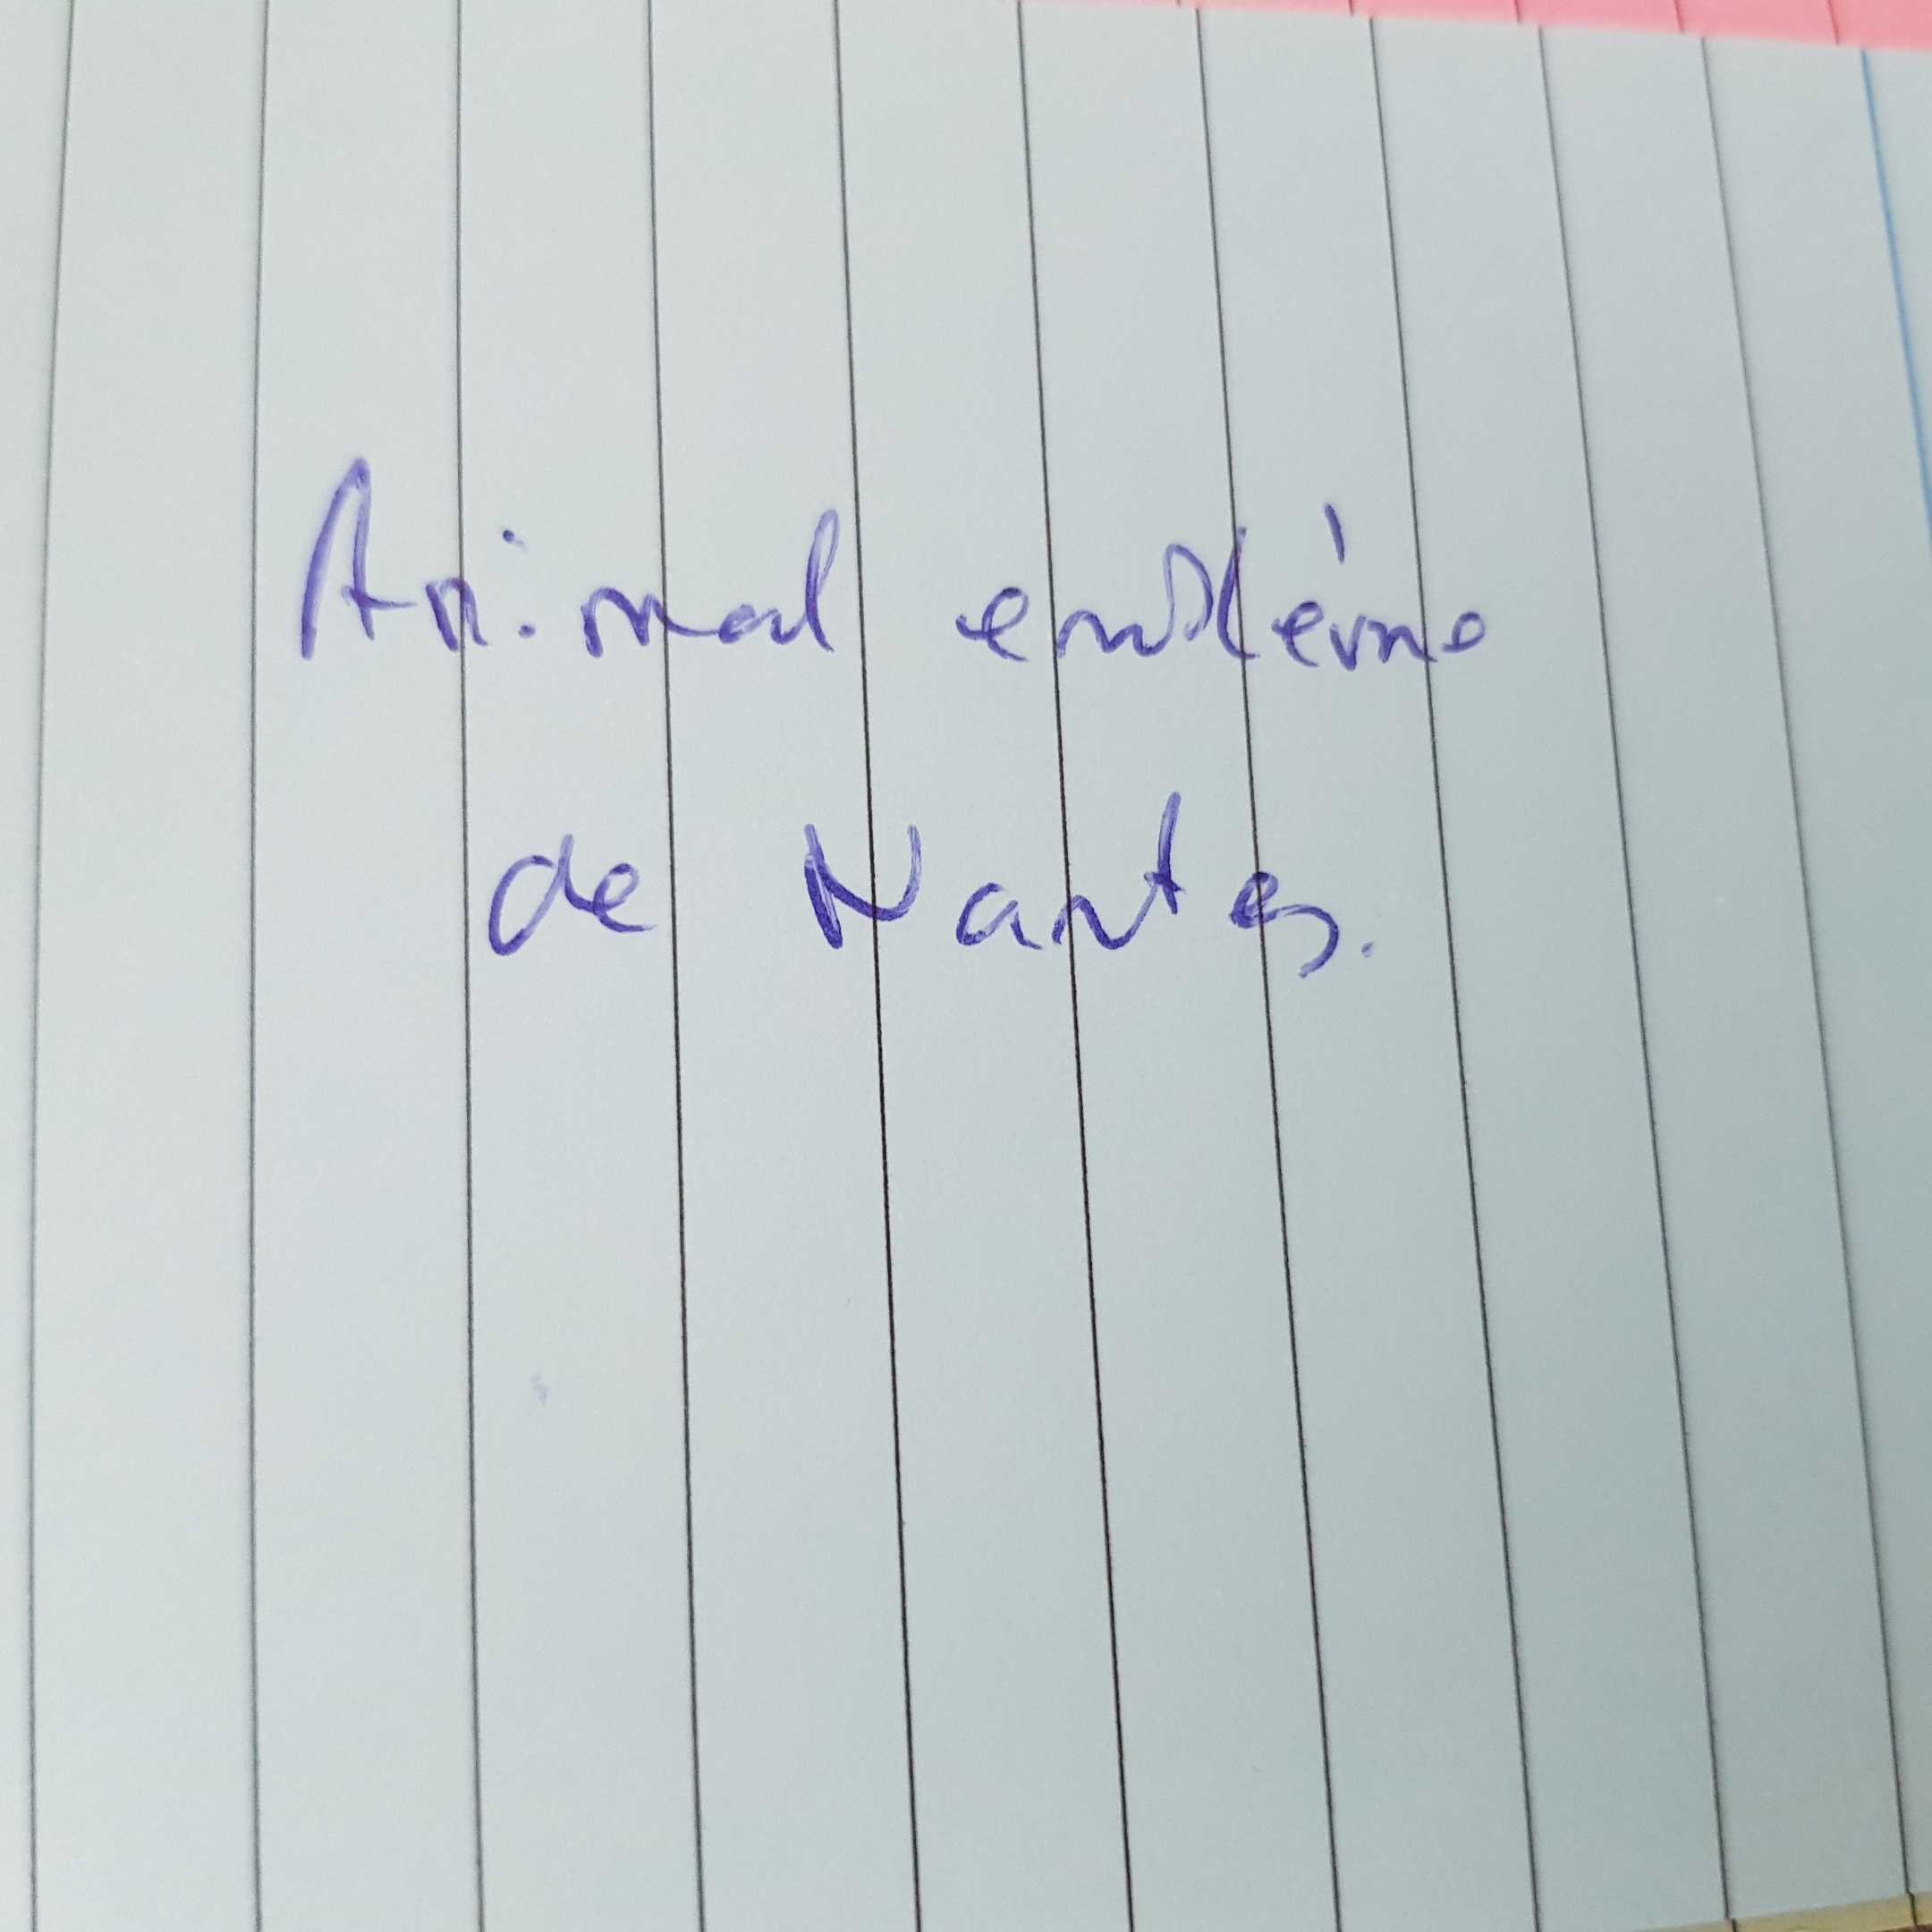 Animal emblème
de Nantes.